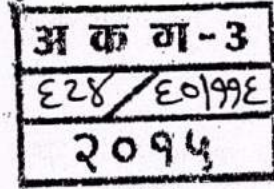 अ क ग - ३
६२४/६०|११६
२०१५